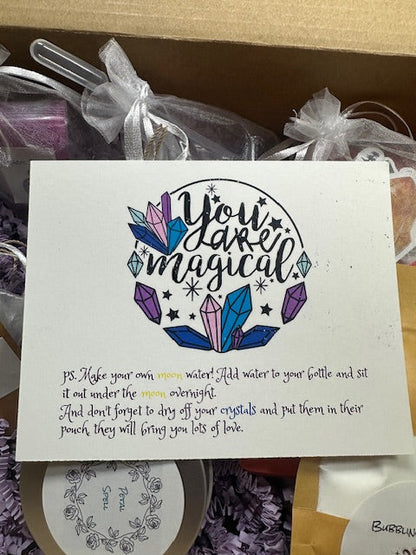 You
are
magical.
PS. Make your own moon water! Add water to your bottle and sit
it out under the moon overnight.
And don't forget to dry off your crystals and put them in their
pouch, they will bring you lots of love.
BUBBLIN